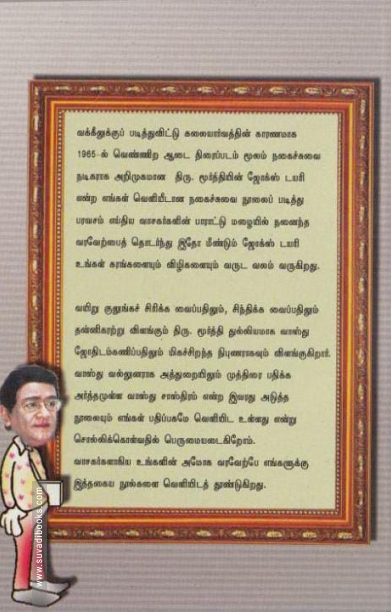 வக்கீலுக்குப் படித்துவிட்டு கலையார்வத்தின் காரணமாக
1965-ல் வெண்ணிற ஆடை திரைப்படம் மூலம் நகைச்சுவை
நடிகராக அறிமுகமான திரு. மூர்த்தியின் ஜோக்ஸ் டயரி
என்ற எங்கள் வெளியீடான நகைச்சுவை நூலைப் படித்து
பரவசம் எய்திய வாசகர்களின் பாராட்டு மழையில் நனைந்த
வரவேற்பைத் தொடர்ந்து இதோ மீண்டும் ஜோக்ஸ் டயரி
உங்கள் கரங்களையும் விழிகளையும் வருட வலம் வருகிறது.
வயிறு குலுங்கச் சிரிக்க வைப்பதிலும், சிந்திக்க வைப்பதிலும்
தன்னிகரற்று விளங்கும் திரு. மூர்த்தி துல்லியமாக வாஸ்து
ஜோதிடம்கணிப்பதிலும் மிகச்சிறந்த நிபுணராகவும் விளங்குகிறார்.
வாஸ்து வல்லுனராக அத்துறையிலும் முத்திரை பதிக்க
அர்த்தமுள்ள வாஸ்து சாஸ்திரம் என்ற இவரது அடுத்த
நூலையும் எங்கள் பதிப்பகமே வெளியிட உள்ளது என்று
சொல்லிக்கொள்வதில் பெருமையடைகிறோம்.
வாசகர்களாகிய உங்களின் அமோக வரவேற்பே எங்களுக்கு
இத்தகைய நூல்களை வெளியிடத் தூண்டுகிறது.
www.suvadibooks.com